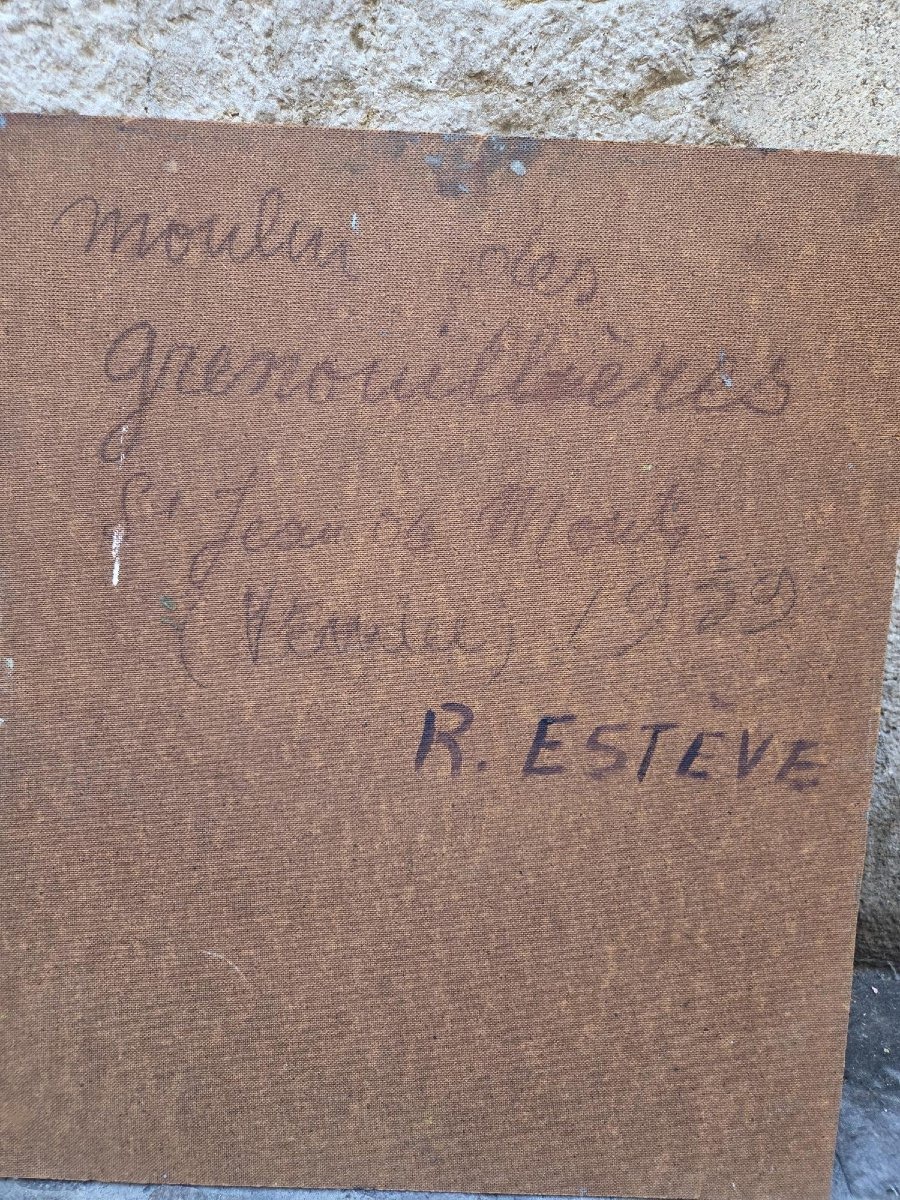 moulin des
grenouillères
St Jean de Monts
(Vendée) 1939
R. ESTÈVE